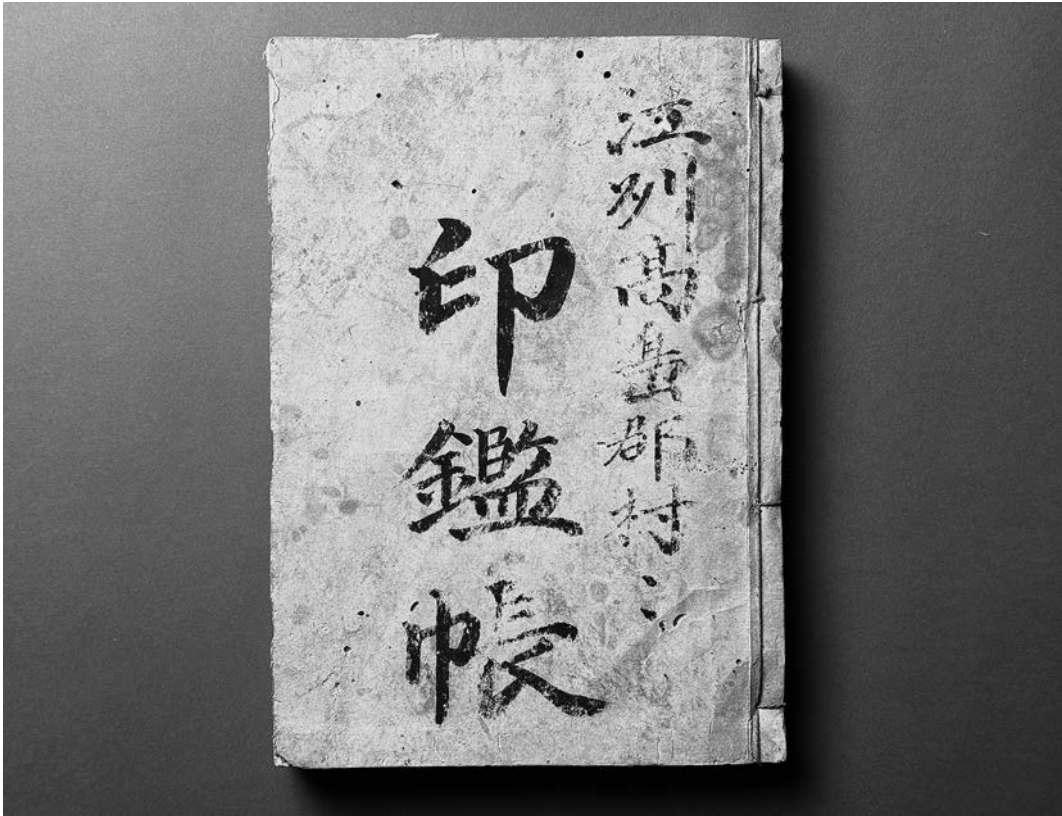 江州高島郡村〻
印鑑帳